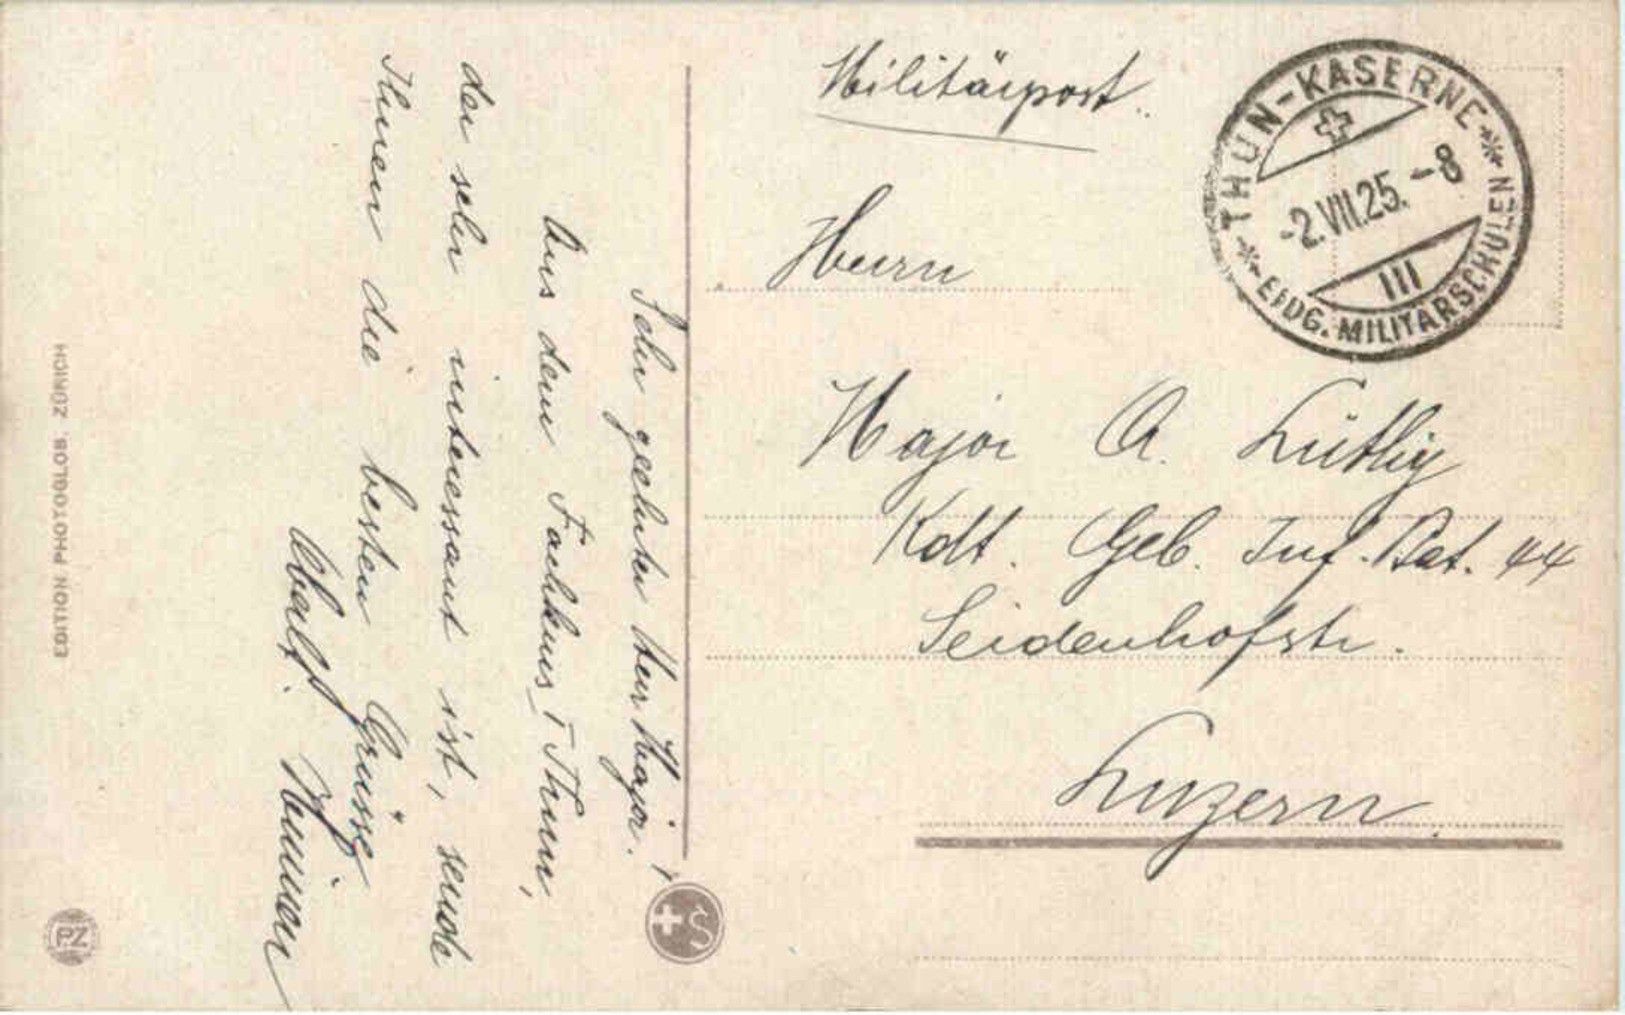 Militärpost.
THUN-KASERNE
-2.VII.25.-8
III
EIDG. MILITÄRSCHULEN
Herrn
Major A. Lüthy
Kdt. Geb. Inf. Bat. 44
Seidenhofstr.
Luzern.
Sehr geehrter Herr Major!
Aus dem Fachkurs I Thun,
der sehr interessant ist, sende
Ihnen die besten Grüsse
EDITION PHOTOGLOB. ZÜRICH
PZ
S